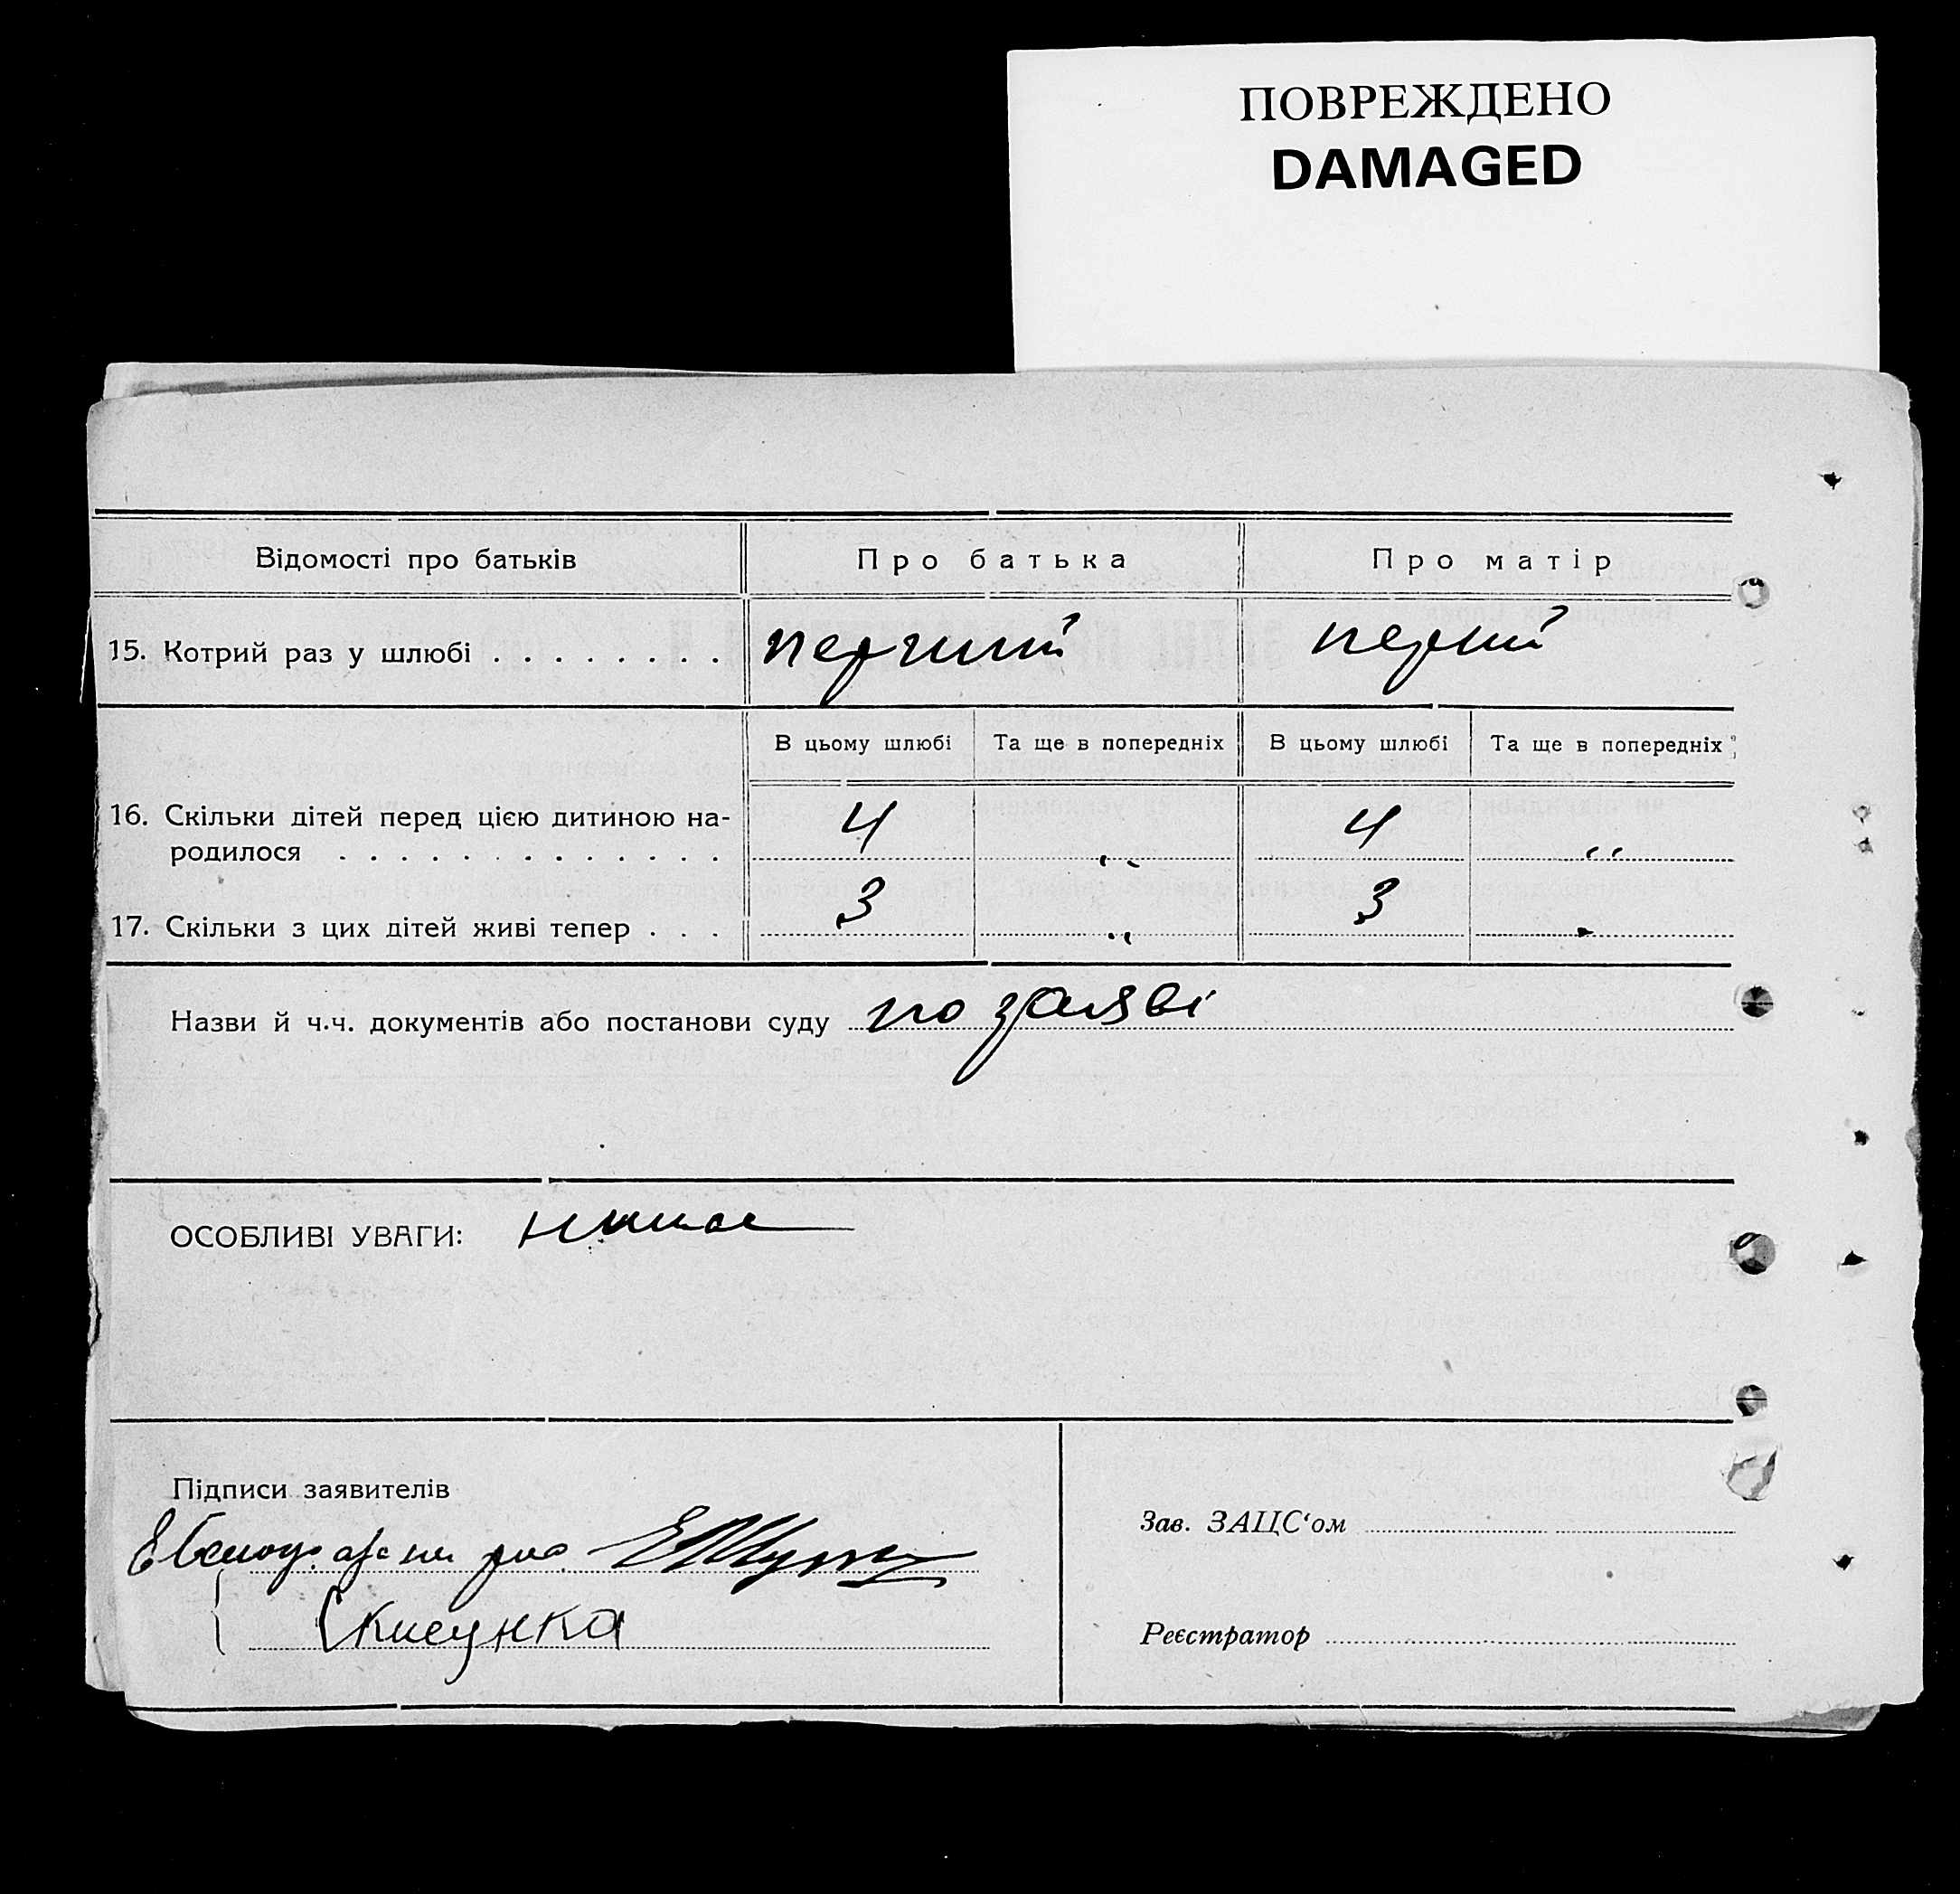 ПОВРЕЖДЕНО
DAMAGED
Відомості про батьків Про батька Про матір
15. Котрий раз у шлюбі . . . . . . . . перший перший
В цьому шлюбі Та ще в попередніх В цьому шлюбі Та ще в попередніх
16. Скільки дітей перед цією дитиною на-
родилося . . . . . . . . . . . . . 4 „ 4 „
17. Скільки з цих дітей живі тепер . . . 3 „ 3 „
Назви й ч.ч. документів або постанови суду по заяві
ОСОБЛИВІ УВАГИ:
Підписи заявителів
Зав. ЗАЦС‘ом
Реєстратор